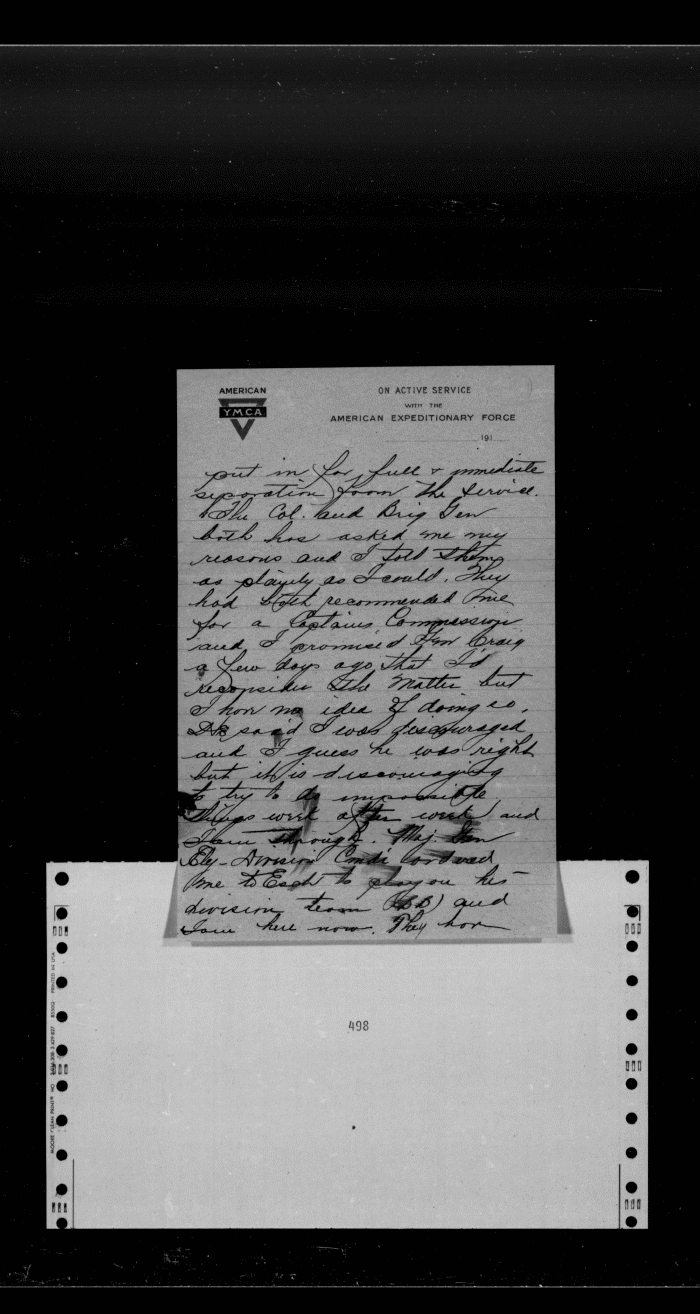 AMERICAN
YMCA
ON ACTIVE SERVICE
WITH THE
AMERICAN EXPEDITIONARY FORCE
191
put in for full + immediate
separation from the service.
The Col. and Brig Gen
both has asked me my
reasons and I told them
as plainly as I could. They
had both recommended me
for a Captains Commission
and I promised Gen Craig
a few days ago that I'd
reconsider the matter but
I have no idea of doing so.
He said I was discouraged
and I guess he was right
but it is discouraging
to try to do impossible
things week after week and
I am through. Maj Gen
Ely - Division Comdr ordered
me to to play on his
division team and
I am here now. They have
498
PRINTED IN USA
MOORE CLEAN PRINT